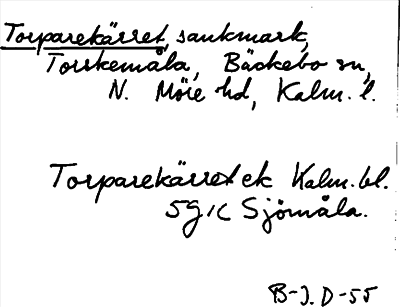 Torparekärret, sankmark,
Torskemåla, Bäckebo sn,
N. Möre hd, Kalm. l.
Torparekärret ek Kalm. bl.
5g1c Sjömåla.
B-J. D-55